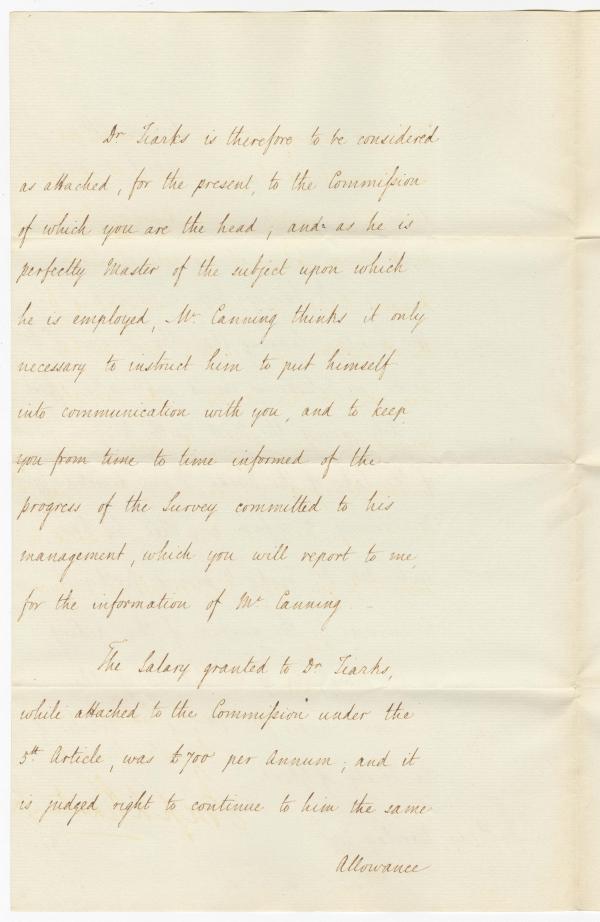 Dr Tiarks is therefore to be considered
as attached, for the present, to the Commission
of which you are the head; and as he is
perfectly Master of the subject upon which
he is employed, Mr. Canning thinks it only
necessary to instruct him to put himself
into communication with you, and to keep
you from time to time informed of the
progress of the Survey committed to his
management, which you will report to me,
for the information of Mr. Canning.
The Salary granted to Dr Tiarks,
while attached to the Commission under the
5th Article, was £700 per Annum; and it
is judged right to continue to him the same
Allowance